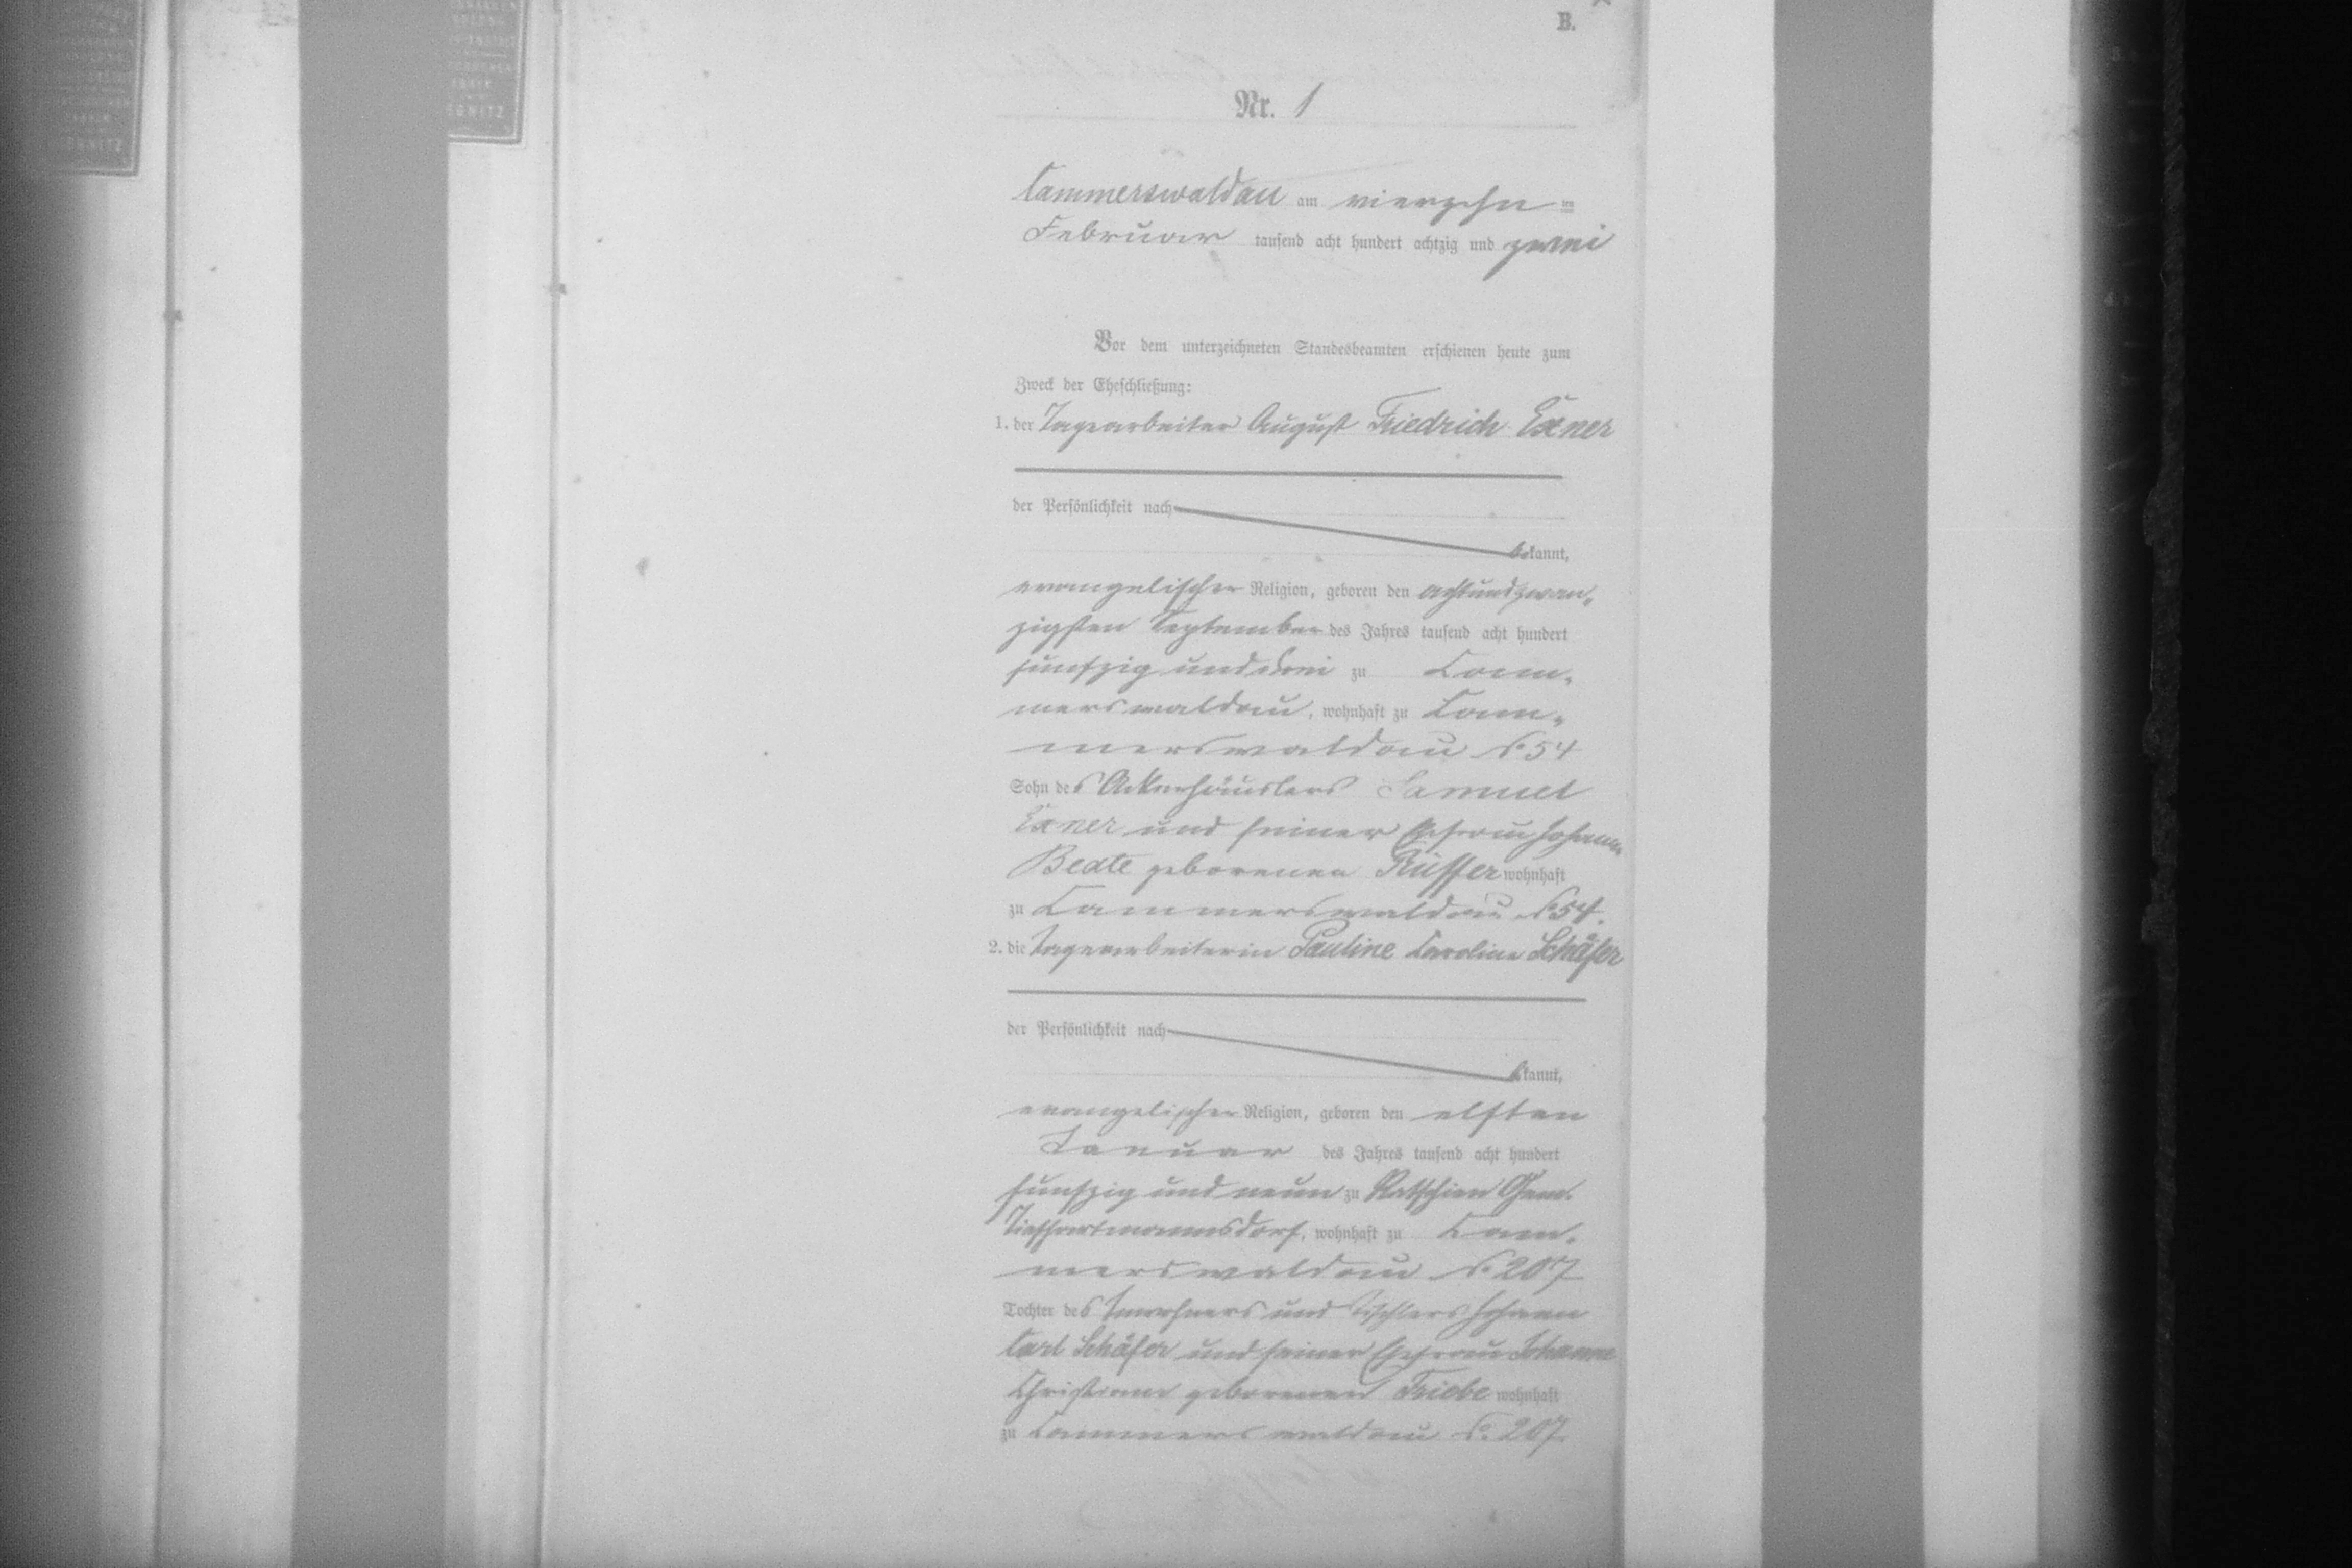 B.
Nr. 1
Cammerswaldau am vierzehn ten
Februar tausend acht hundert achtzig und zwei
Vor dem unterzeichneten Standesbeamten erschienen heute zum
Zweck der Eheschließung:
1. der Tagearbeiter August Friedrich Exner
der Persönlichkeit nach
bekannt,
evangelischer Religion, geboren den achtundzwan-
zigsten September des Jahres tausend acht hundert
fünfzig und drei zu Cam-
merswaldau, wohnhaft zu Cam-
merswaldau No 54
Sohn des Ackerhäuslers Samuel
Exner und seiner Ehefrau Johanne
Beate geborenen Rüffer wohnhaft
zu Cammerswaldau No 54.
2. die Tagearbeiterin Pauline Caroline Schäfer
der Persönlichkeit nach
bekannt,
evangelischer Religion, geboren den elften
Januar des Jahres tausend acht hundert
fünfzig und neun zu Ratschin Gem.
Tiefhartmannsdorf, wohnhaft zu Cam-
merswaldau No 207
Tochter des Inwohners und Tischlers Johann
Carl Schäfer und seiner Ehefrau Johanne
Christiane geborenen Friebe wohnhaft
zu Cammerswaldau No. 207